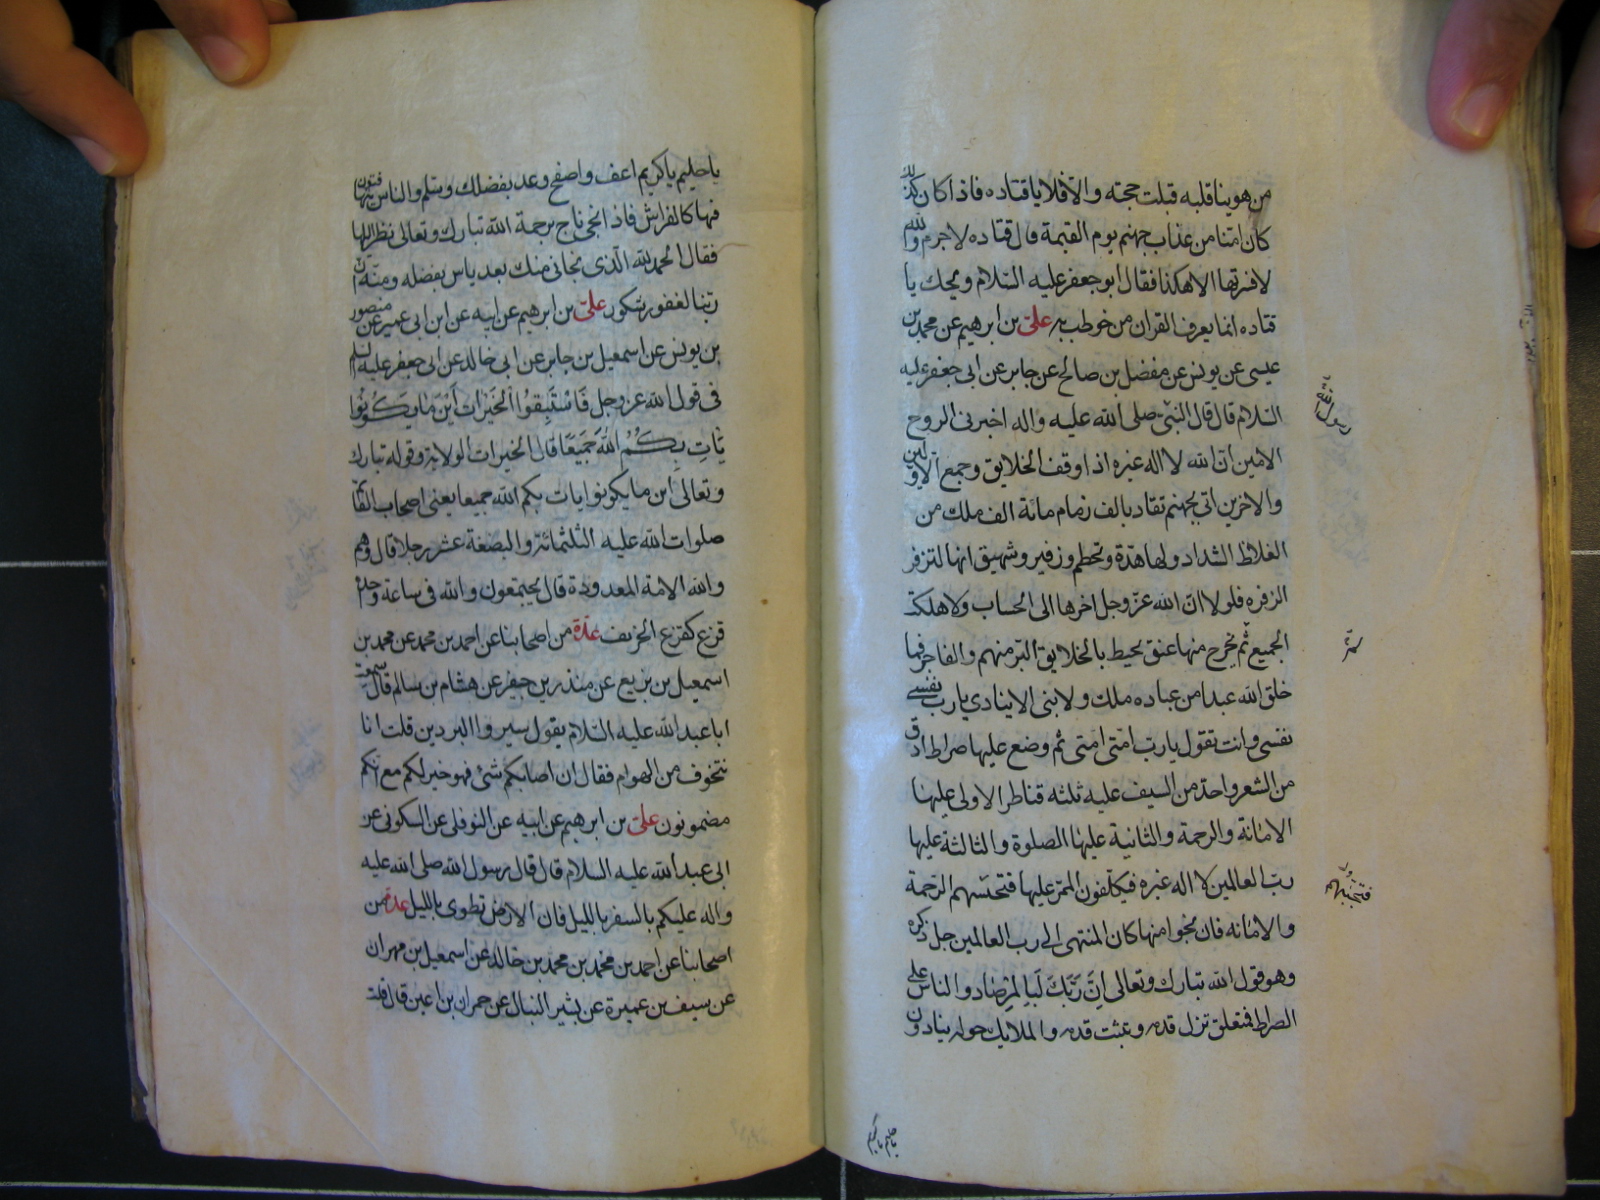 من هوينا قلبه قبلت حجته والّا فلا يا قتاده فاذا كان كذلك
كان امنا من عذاب جهنم يوم القيمة قال قتاده لاجرم والله
لا فسرتها الا هكذا فقال ابو جعفر عليه السّلام ويحك يا
قتاده انما يعرف القران من خوطب به علىّ بن ابرهيم عن محمد بن
عيسى عن يونس عن مفضل بن صالح عن جابر عن ابى جعفر عليه
السّلام قال قال النبىّ صلى الله عليه واله اخبرنى الروح
الامين انّ الله لا اله غيره اذا وقف الخلايق وجمع الاوّلين
والاخرين اتى بجهنم تقاد بالف زمام مائة الف ملك من
الغلاظ الشداد ولها هدّة وتحطم وزفير وشهيق انها لتزفر
الزفره فلولا انّ الله عزّ وجل اخرها الى الحساب ولاهلكت
الجميع ثم يخرج منها عنق يحيط بالخلايق البرّ منهم والفاجر فما
خلق الله عبدا من عباده ملك ولا نبى الا ينادى يا رب نفسى
نفسى وانت تقول يا ربّ امّتى امتى ثم وضع عليها صراط ادق
من الشعر واحدّ من السيف عليه ثلثه قناطر الاولى عليها
الامانة والرحمة والثانية عليها الصلوة والثالثة عليها
ربّ العالمين لا اله غيره فيكلّفون الممرّ عليها فتحبسهم الرّحمة
والامانه فان نجوا منها كان المنتهى الى رب العالمين جل ذكره
وهو قول الله تبارك وتعالى اِنَّ رَبَّكَ لَبِالمِرصَاد والناس على
الصراط فمتعلق تزل قدمه وتثبت قدمه والملايك حوله ينادون
رسول الله
فتحبسهم
يا حليم يا كريم
يا حليم يا كريم اعف واصفح وعد بفضلك وسلم والناس يتهافتون
فيها كالفراش فاذا نجى ناج برحمة الله تبارك وتعالى نظر اليها
فقال الحمد لله الّذى نجانى منك بعد ياس بفضله ومنّه ان
ربّنا لغفور شكور علىّ بن ابرهيم عن ابيه عن ابن ابى عمير عن منصور
بن يونس عن اسمعيل بن جابر عن ابى خالد عن ابى جعفر عليه السلم
فى قول الله عز وجل فَاسْتَبِقُوا الْخَيرَات اَيْنَ مَا يَكُونُوا
يَاتِ بِكُمُ اللهُ جَمِيعًا قال الخيرات الولاية وقوله تبارك
وتعالى اين ما يكونوا يات بكم الله جميعا يعنى اصحاب القائم
صلوات الله عليه الثلثمائة والبضعة عشر رجلا قال وهم
والله الامة المعدودة قال يجتمعون والله فى ساعة واحدة
قزع كقزع الخريف عدّة من اصحابنا عن احمد بن محمد عن محمد بن
اسمعيل بن بزيع عن منذر بن جيفر عن هشام بن سالم قال سمعت
ابا عبد الله عليه السّلام يقول سيروا البردين قلت انا
نتخوف من الهوام فقال ان اصابكم شئ فهو خير لكم مع انكم
مضمونون علىّ بن ابرهيم عن ابيه عن النوفلى عن السكونى عن
ابى عبد الله عليه السّلام قال قال رسول الله صلى الله عليه
واله عليكم بالسفر بالليل فان الارض تطوى بالليل عدة من
اصحابنا عن احمد بن محمد بن محمد بن خالد عن اسمعيل بن مهران
عن سيف بن عميرة عن بشير النبال عن حمران بن اعين قال قلت